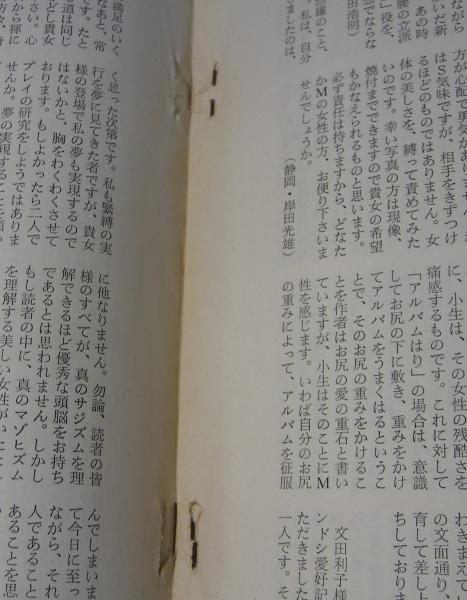 ながら
いだ新
あの時
腰の立派
「役を、
然でならな
田浩明）
活躍のこと、
私は、自分
きましたのは、
方が心配で勇気が
はS気味ですが、相手をきずつけ
るほどのものではありません。女
体の美しさを、縛って責めてみた
いのです。幸い写真の方は現像、
焼付までできますので貴女の希望
もかなえられるものと思います。
必ず責任は持ちますから、どなた
かMの女性の方、お便り下さいま
せんでしょうか。
（静岡・岸田光雄）
に、小生は、その女性の残酷さを
痛感するものです。これに対して
「アルバムはり」の場合は、意識
してお尻の下に敷き、重みをかけ
てアルバムをうまくはるというこ
とで、そのお尻の重みをかけるこ
とを作者はお尻の愛の重石と書い
ていますが、小生はそのことにM
性を感じます。いわば自分のお尻
の重みによって、アルバムを征服
わきまえてい
の文面通り、
育して差し上
ちしておりま
文田利子様
ンドシ愛好記
ただきました
一人です。そ
く思った次第です。私も緊縛の実
行を夢に見てきた者ですが、貴女
様の登場で私の夢も実現するので
はないかと、胸をわくわくさせて
おります。もしよかったら二人で
プレイの研究をしようではありま
せんか。夢の実現することを願っ
満足のいく
なあと、常
です。たと
る道は同じ
どし貴女
さい。心
から褌に
に他なりません。勿論、読者の皆
様のすべてが、真のサジズムを理
解できるほど優秀な頭脳をお持ち
であるとは思われません。しかし
もし読者の中に、真のマゾヒズム
を理解する美しい女性がいたとし
んでしまいま
て今日に至っ
ながら、それ
人であること
あることを思